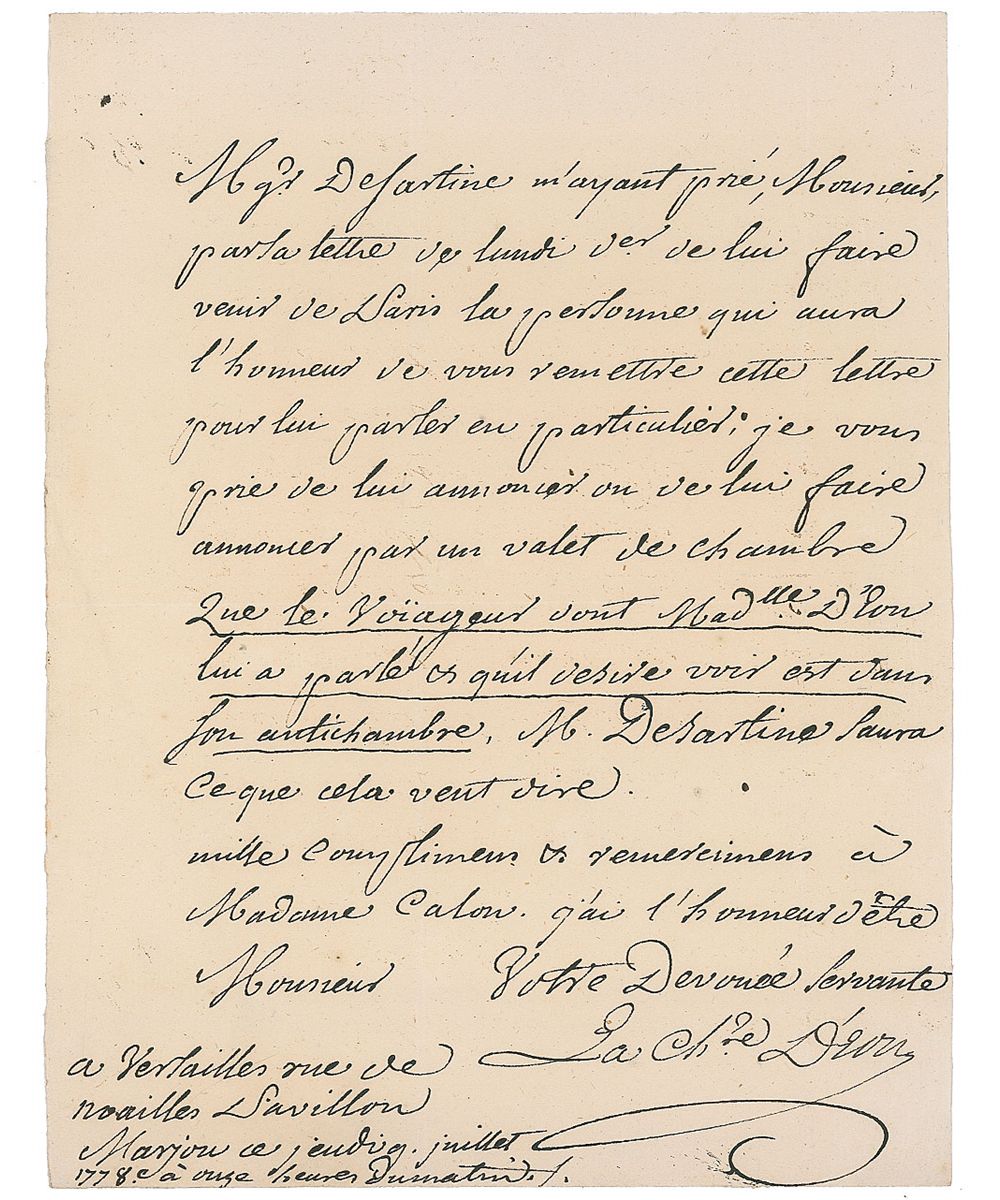 Mgr. DeSartine m'ayant prié, Monsieur,
par sa lettre de lundi der de lui faire
venir de Paris la personne qui aura
l'honneur de vous remettre cette lettre
pour lui parler en particulier; je vous
prie de lui annoncer ou de lui faire
annoncer par un valet de chambre
Que le Voïageur dont Madlle D'Eon
lui a parlé & qu'il desire voir est dans
son antichambre, M. DeSartine saura
Ce que cela veut dire.
mille Complimens & remercimens à
Madame Calon. j'ai l'honneur d'être
Monsieur Votre Devouée servante
La Chre D'Eon
a Versailles rue de
noailles Pavillon
Marjon ce jeudi 9. juillet
1778. à onze heures Du matin ./.